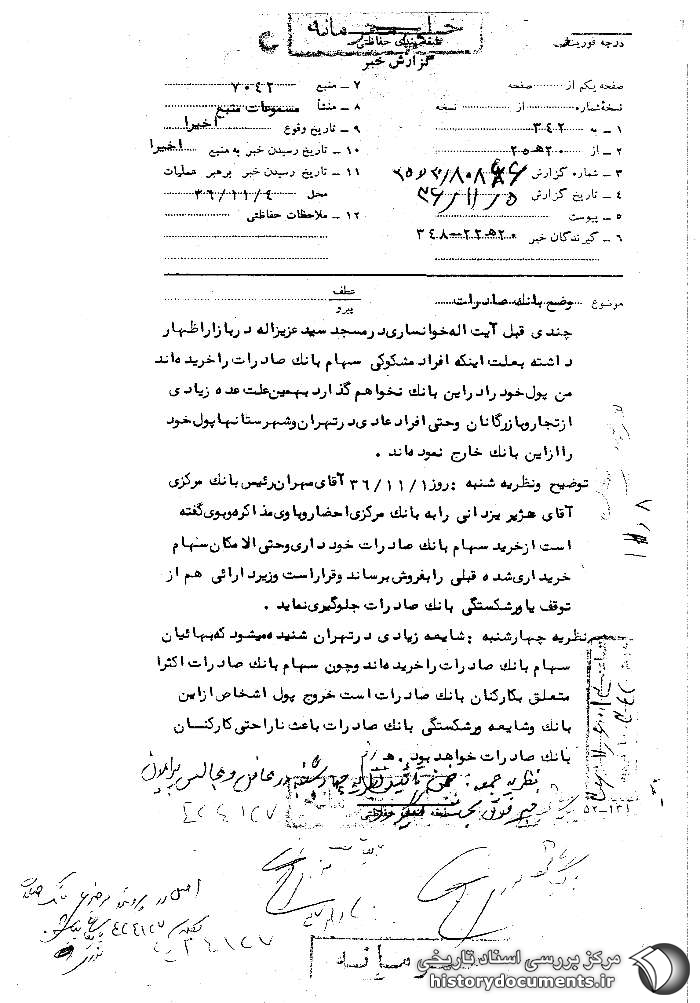 خیلی محرمانه
طبقه‌بندی حفاظتی
درجه فوریت
گزارش خبر
صفحه یکم از صفحه
نسخه‌شماره از نسخه
۱ ـ به ۳۴۲
۲ ـ از ۲۰ ه‍ ۲۵
۳ ـ شماره گزارش
۴ ـ تاریخ گزارش
۵ ـ پیوست
۶ ـ گیرندگان خبر ۲۰ه‍ ۲۲ ـ ۳۴۸
۷ ـ منبع ۷۰۴۲
۸ ـ منشأ مسموعات منبع
۹ ـ تاریخ وقوع اخیرا
۱۰ ـ تاریخ رسیدن خبر به منبع اخیرا
۱۱ ـ تاریخ رسیدن خبر برهبر عملیات
محل ۳۶/۱۱/۴
۱۲ ـ ملاحظات حفاظتی
موضوع وضع بانك صادرات
عطف
پیرو
چندی قبل آیت اله خوانساری در مسجد سید عزیزاله در بازار اظهار
داشته بعلت اینکه افراد مشکوکی سهام بانك صادرات را خریده‌اند
من پول خود را در این بانك نخواهم گذارد بهمین علت عده زیادی
از تجار و بازرگانان وحتی افراد عادی در تهران و شهرستانها پول خود
را از این بانك خارج نموده‌اند .
توضیح ونظریه شنبه : روز ۳۶/۱۱/۱ آقای مهران رئیس بانك مرکزی
آقای هژبر یزدانی را به بانك مرکزی احضار و با وی مذاکره و بوی گفته
است از خرید سهام بانك صادرات خود داری وحتی الامکان سهام
خریداری شده قبلی را بفروش برساند و قرار است وزیر دارائی هم از
توقف یا ورشکستگی بانك صادرات جلوگیری نماید .
نظریه چهارشنبه : شایعه زیادی در تهران شنیده میشود که بهائیان
سهام بانك صادرات را خریده‌اند و چون سهام بانك صادرات اکثرا
متعلق بکارکنان بانك صادرات است خروج پول اشخاص از این
بانك و شایعه ورشکستگی بانك صادرات باعث ناراحتی کارکنسان
بانك صادرات خواهد بود . ه‍
نظریه جمعه : ضمن تائید نظریه چهارشنبه در محافل و مجالس
خبر فوق بحث میگردد
۵۲ ـ ۱۳۱
۴۲۴۱۲۷
اصل در پرونده
۴۲۴۱۲۷
مرکز بررسی اسناد تاریخی
historydocuments.ir